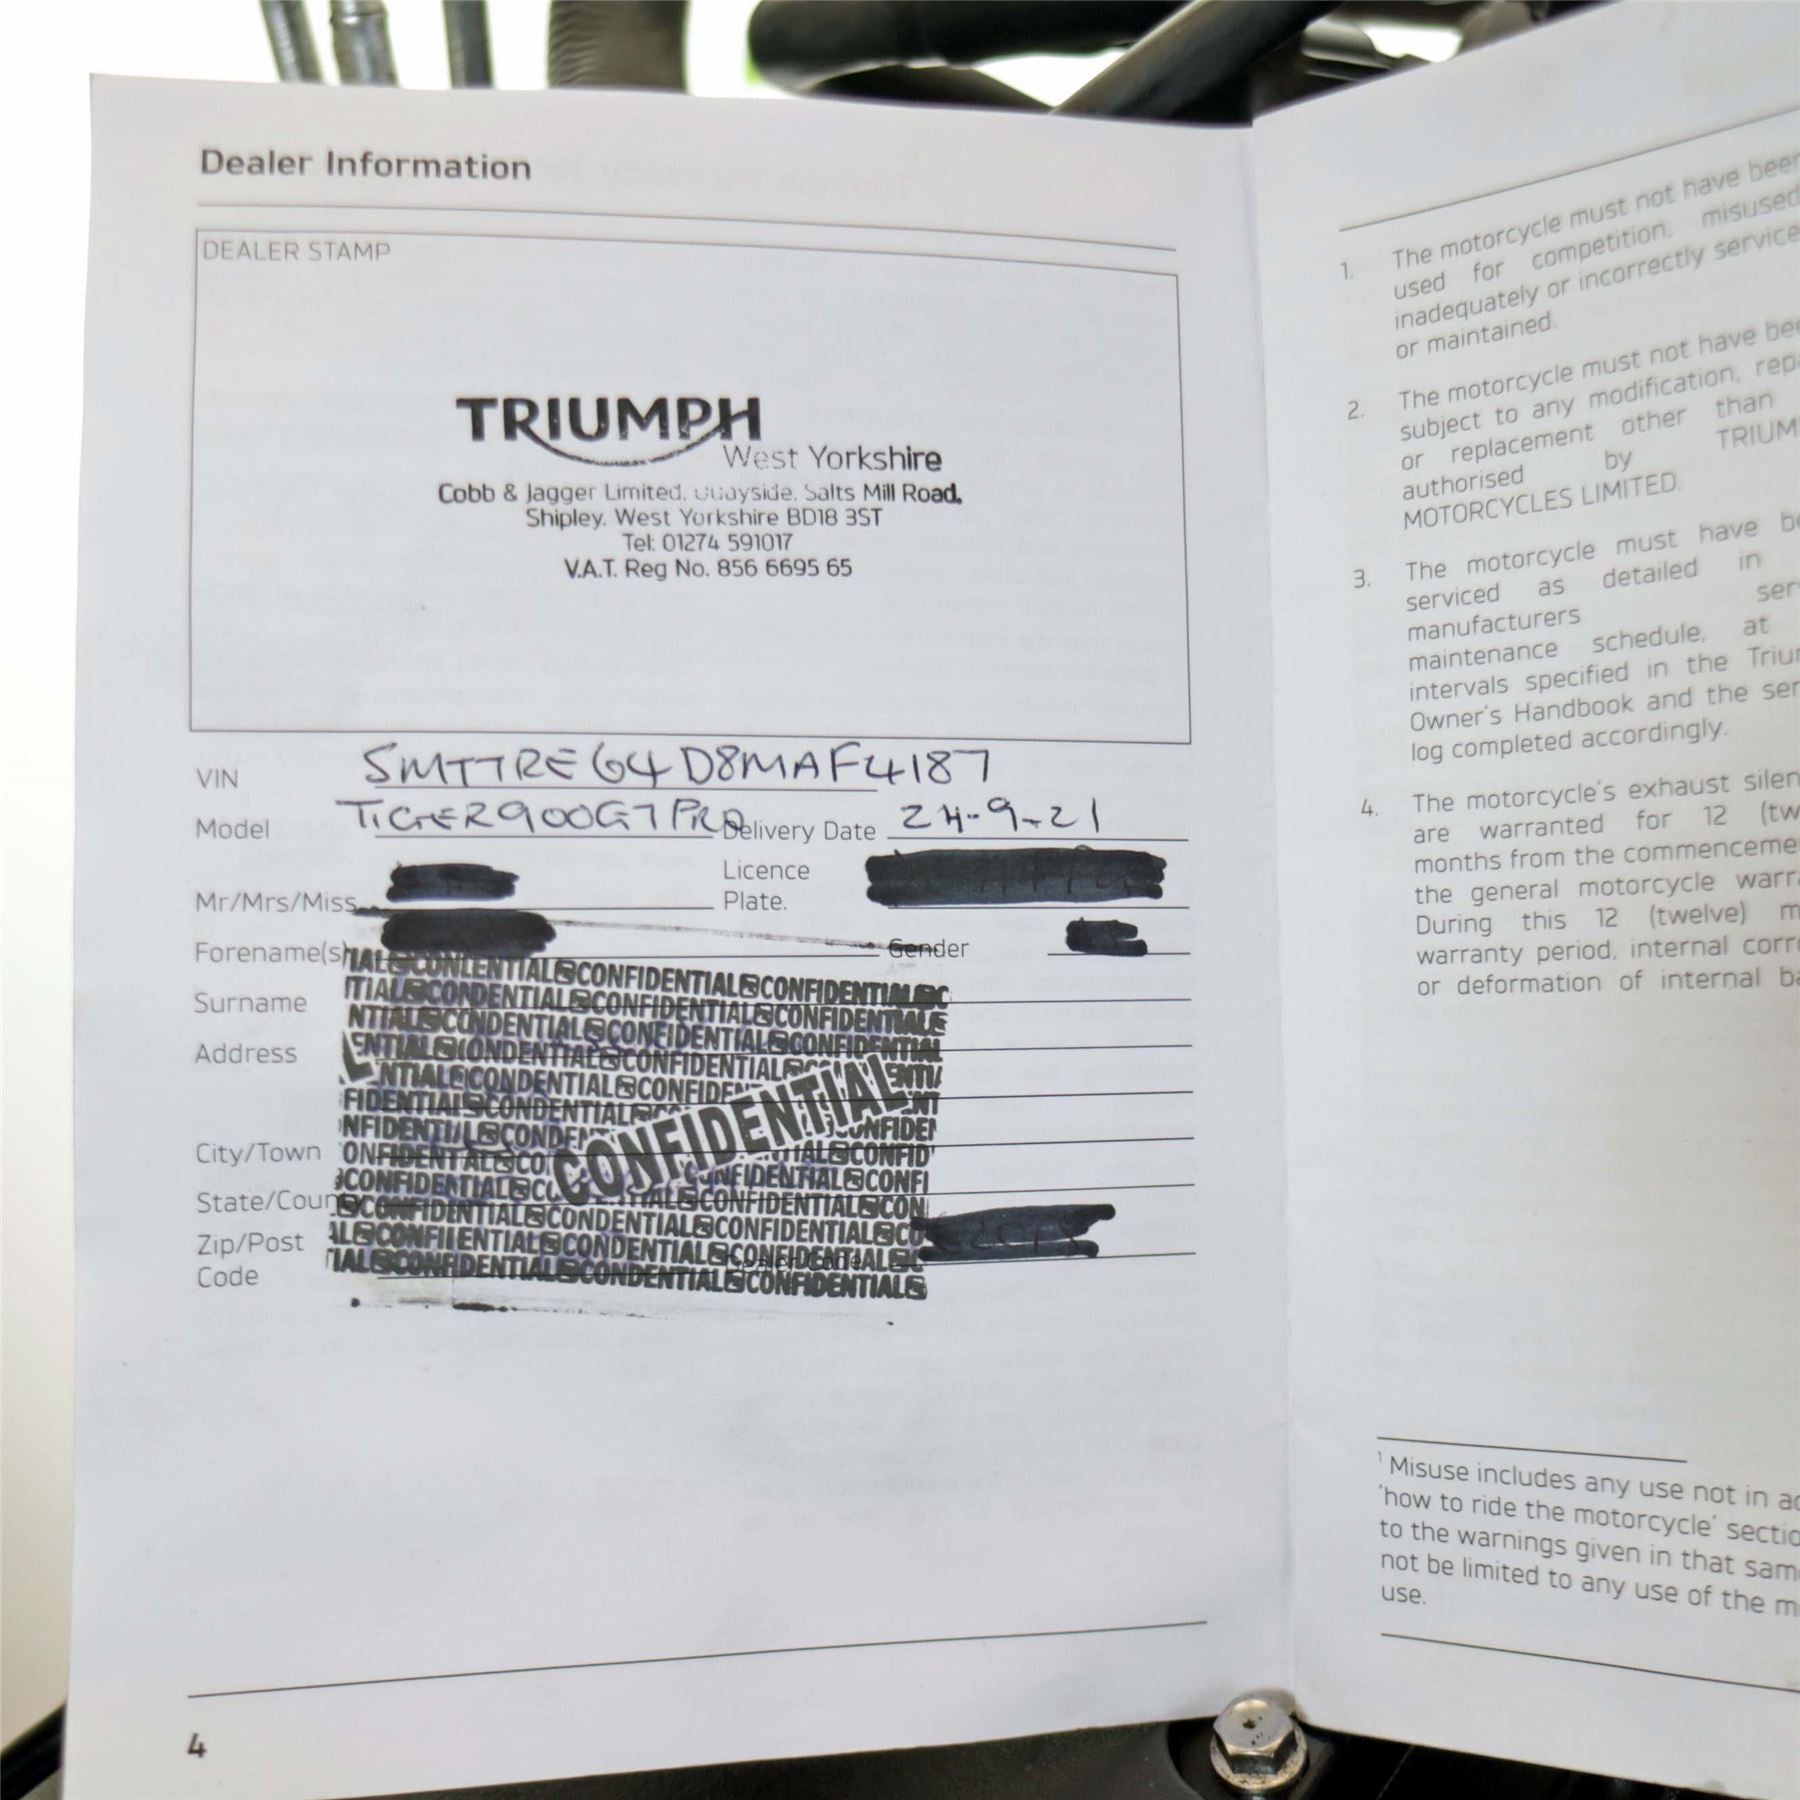 Dealer Information
DEALER STAMP
TRIUMPH
West Yorkshire
Cobb & Jagger Limited. Quayside. Salts Mill Road,
Shipley. West Yorkshire BD18 3ST
Tel: 01274 591017
V.A.T. Reg No. 856 6695 65
VIN SMTTRE64D8MAF4187
Model TIGER900GTPRO Delivery Date 24-9-21
Mr/Mrs/Miss
Licence
Plate.
Forename(s) Gender
Surname
Address
City/Town
State/Coun
Zip/Post
Code
CONFIDENTIAL
4
1. The motorcycle must not have been
used for competition, misused
inadequately or incorrectly service
or maintained.
2. The motorcycle must not have bee
subject to any modification, repa
or replacement other than
authorised by TRIUM
MOTORCYCLES LIMITED.
3. The motorcycle must have be
serviced as detailed in
manufacturers serv
maintenance schedule, at
intervals specified in the Trium
Owner's Handbook and the ser
log completed accordingly.
4. The motorcycle's exhaust silen
are warranted for 12 (tw
months from the commenceme
the general motorcycle warra
During this 12 (twelve) m
warranty period, internal corr
or deformation of internal ba
1 Misuse includes any use not in ac
'how to ride the motorcycle' sectio
to the warnings given in that sam
not be limited to any use of the m
use.